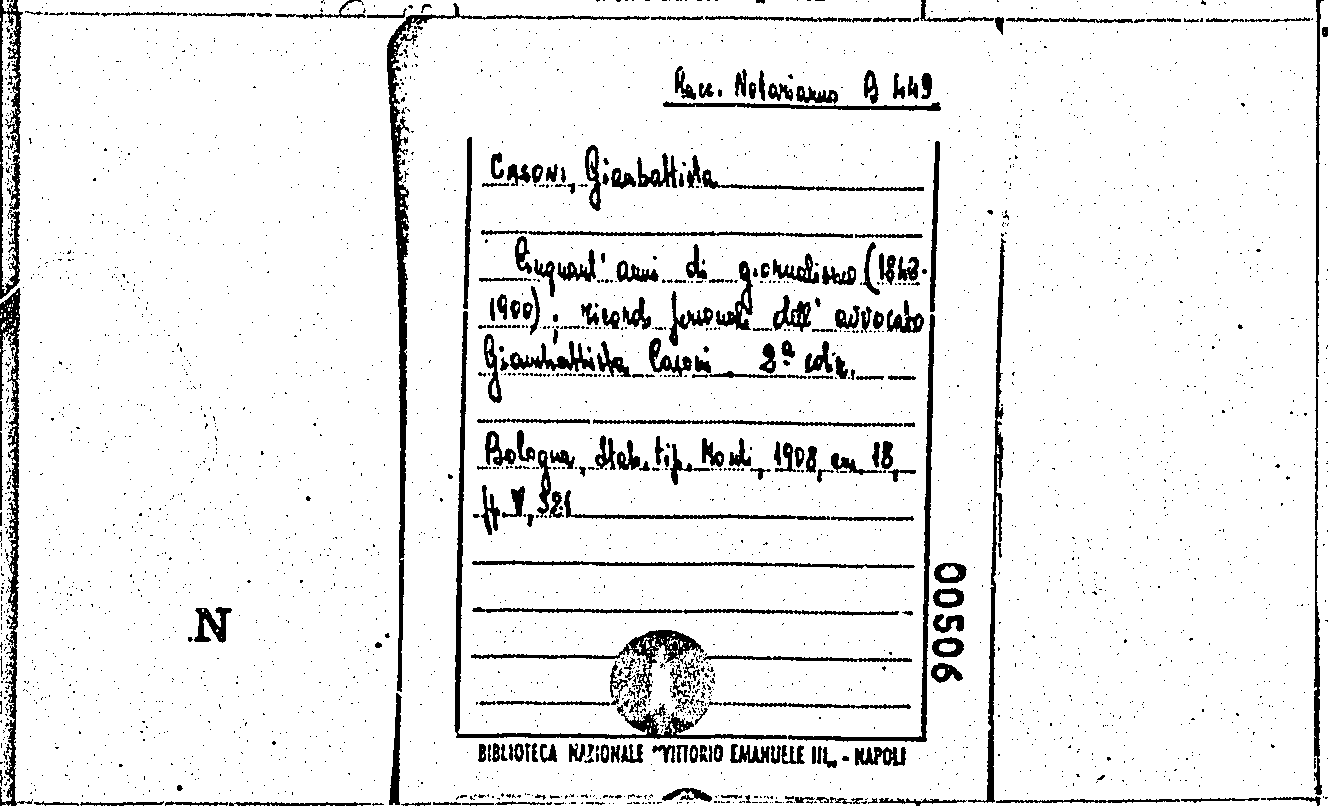 Racc. Notarianni B 449
CASONI, Giambattista
Cinquant' anni di giornalismo (1848-
1900). ricordi personali dell' avvocato
Giambattista Casoni. 2ª ediz.
Bologna, Stab. tip. Monti, 1908, cm. 18,
pp. V, 321
00506
N
BIBLIOTECA NAZIONALE "VITTORIO EMANUELE III„ - NAPOLI